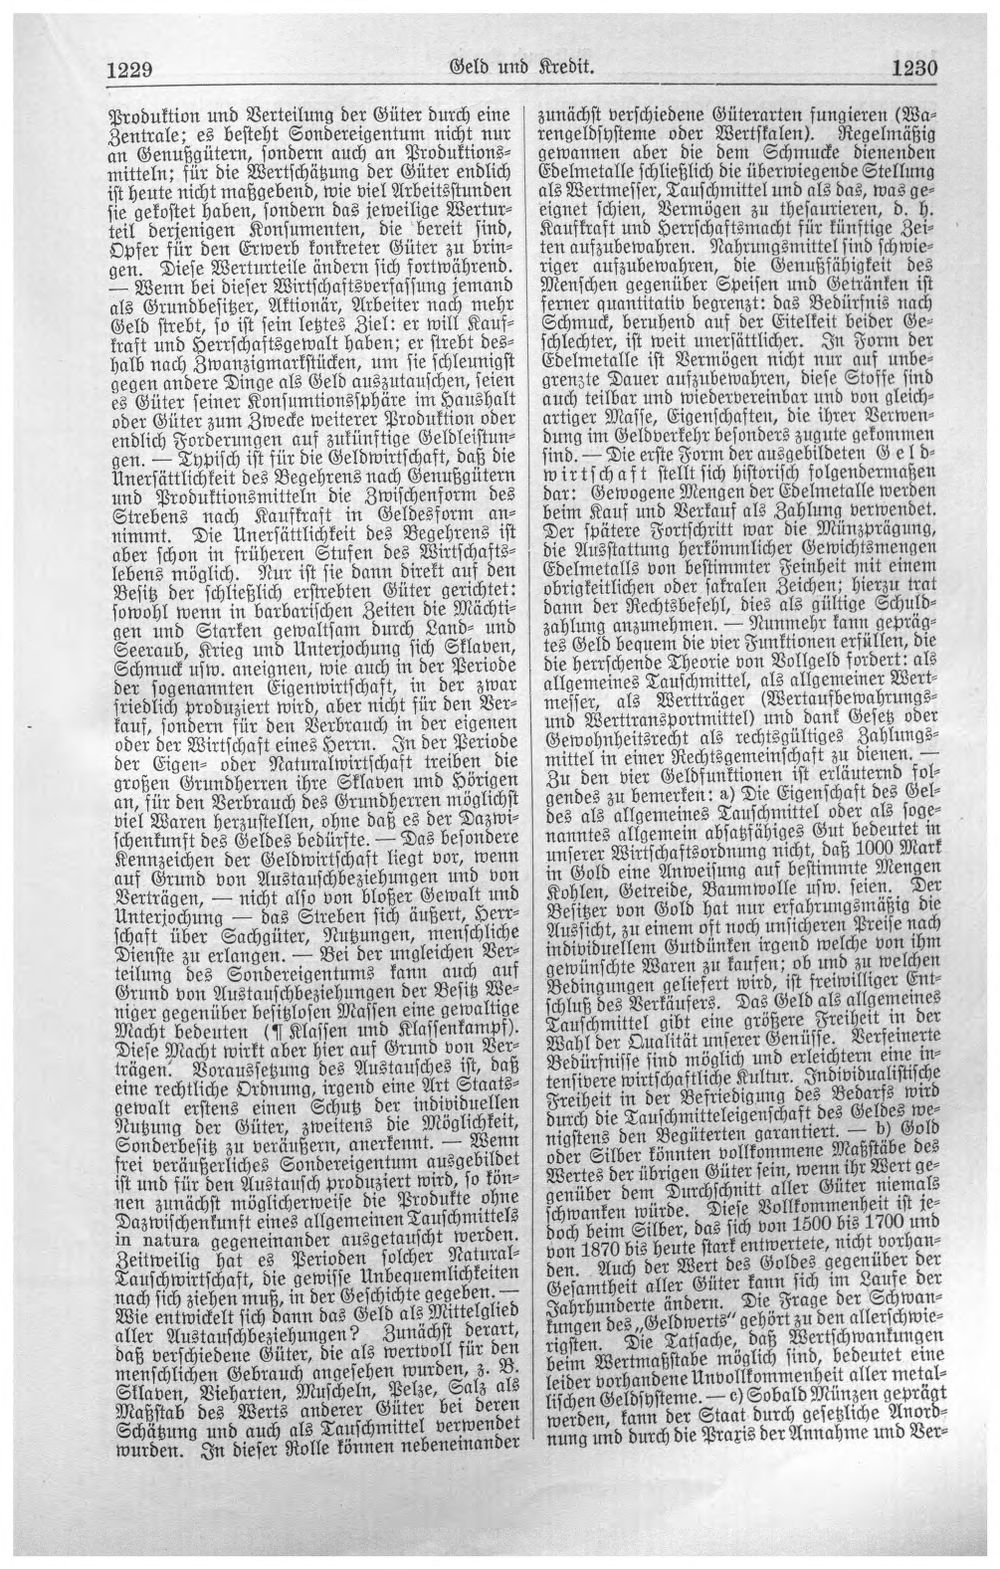 1229 Geld und Kredit. 1230
Produktion und Verteilung der Güter durch eine
Zentrale; es besteht Sondereigentum nicht nur
an Genußgütern, sondern auch an Produktions-
mitteln; für die Wertschätzung der Güter endlich
ist heute nicht maßgebend, wie viel Arbeitsstunden
sie gekostet haben, sondern das jeweilige Wertur-
teil derjenigen Konsumenten, die bereit sind,
Opfer für den Erwerb konkreter Güter zu brin-
gen. Diese Werturteile ändern sich fortwährend.
— Wenn bei dieser Wirtschaftsverfassung jemand
als Grundbesitzer, Aktionär, Arbeiter nach mehr
Geld strebt, so ist sein letztes Ziel: er will Kauf-
kraft und Herrschaftsgewalt haben; er strebt des-
halb nach Zwanzigmarkstücken, um sie schleunigst
gegen andere Dinge als Geld auszutauschen, seien
es Güter seiner Konsumtionssphäre im Haushalt
oder Güter zum Zwecke weiterer Produktion oder
endlich Forderungen auf zukünftige Geldleistun-
gen. — Typisch ist für die Geldwirtschaft, daß die
Unersättlichkeit des Begehrens nach Genußgütern
und Produktionsmitteln die Zwischenform des
Strebens nach Kaufkraft in Geldesform an-
nimmt. Die Unersättlichkeit des Begehrens ist
aber schon in früheren Stufen des Wirtschafts-
lebens möglich. Nur ist sie dann direkt auf den
Besitz der schließlich erstrebten Güter gerichtet:
sowohl wenn in barbarischen Zeiten die Mächti-
gen und Starken gewaltsam durch Land- und
Seeraub, Krieg und Unterjochung sich Sklaven,
Schmuck usw. aneignen, wie auch in der Periode
der sogenannten Eigenwirtschaft, in der zwar
friedlich produziert wird, aber nicht für den Ver-
kauf, sondern für den Verbrauch in der eigenen
oder der Wirtschaft eines Herrn. In der Periode
der Eigen- oder Naturalwirtschaft treiben die
großen Grundherren ihre Sklaven und Hörigen
an, für den Verbrauch des Grundherren möglichst
viel Waren herzustellen, ohne daß es der Dazwi-
schenkunft des Geldes bedürfte. — Das besondere
Kennzeichen der Geldwirtschaft liegt vor, wenn
auf Grund von Austauschbeziehungen und von
Verträgen, — nicht also von bloßer Gewalt und
Unterjochung — das Streben sich äußert, Herr-
schaft über Sachgüter, Nutzungen, menschliche
Dienste zu erlangen. — Bei der ungleichen Ver-
teilung des Sondereigentums kann auch auf
Grund von Austauschbeziehungen der Besitz We-
niger gegenüber besitzlosen Massen eine gewaltige
Macht bedeuten (¶ Klassen und Klassenkampf).
Diese Macht wirkt aber hier auf Grund von Ver-
trägen. Voraussetzung des Austausches ist, daß
eine rechtliche Ordnung, irgend eine Art Staats-
gewalt erstens einen Schutz der individuellen
Nutzung der Güter, zweitens die Möglichkeit,
Sonderbesitz zu veräußern, anerkennt. — Wenn
frei veräußerliches Sondereigentum ausgebildet
ist und für den Austausch produziert wird, so kön-
nen zunächst möglicherweise die Produkte ohne
Dazwischenkunft eines allgemeinen Tauschmittels
in natura gegeneinander ausgetauscht werden.
Zeitweilig hat es Perioden solcher Natural-
Tauschwirtschaft, die gewisse Unbequemlichkeiten
nach sich ziehen muß, in der Geschichte gegeben. —
Wie entwickelt sich dann das Geld als Mittelglied
aller Austauschbeziehungen? Zunächst derart,
daß verschiedene Güter, die als wertvoll für den
menschlichen Gebrauch angesehen wurden, z. B.
Sklaven, Vieharten, Muscheln, Pelze, Salz als
Maßstab des Werts anderer Güter bei deren
Schätzung und auch als Tauschmittel verwendet
wurden. In dieser Rolle können nebeneinander
zunächst verschiedene Güterarten fungieren (Wa-
rengeldsysteme oder Wertskalen). Regelmäßig
gewannen aber die dem Schmucke dienenden
Edelmetalle schließlich die überwiegende Stellung
als Wertmesser, Tauschmittel und als das, was ge-
eignet schien, Vermögen zu thesaurieren, d. h.
Kaufkraft und Herrschaftsmacht für künftige Zei-
ten aufzubewahren. Nahrungsmittel sind schwie-
riger aufzubewahren, die Genußfähigkeit des
Menschen gegenüber Speisen und Getränken ist
ferner quantitativ begrenzt: das Bedürfnis nach
Schmuck, beruhend auf der Eitelkeit beider Ge-
schlechter, ist weit unersättlicher. In Form der
Edelmetalle ist Vermögen nicht nur auf unbe-
grenzte Dauer aufzubewahren, diese Stoffe sind
auch teilbar und wiedervereinbar und von gleich-
artiger Masse, Eigenschaften, die ihrer Verwen-
dung im Geldverkehr besonders zugute gekommen
sind. — Die erste Form der ausgebildeten Geld-
wirtschaft stellt sich historisch folgendermaßen
dar: Gewogene Mengen der Edelmetalle werden
beim Kauf und Verkauf als Zahlung verwendet.
Der spätere Fortschritt war die Münzprägung,
die Ausstattung herkömmlicher Gewichtsmengen
Edelmetalls von bestimmter Feinheit mit einem
obrigkeitlichen oder sakralen Zeichen; hierzu trat
dann der Rechtsbefehl, dies als gültige Schuld-
zahlung anzunehmen. — Nunmehr kann gepräg-
tes Geld bequem die vier Funktionen erfüllen, die
die herrschende Theorie von Vollgeld fordert: als
allgemeines Tauschmittel, als allgemeiner Wert-
messer, als Wertträger (Wertaufbewahrungs-
und Werttransportmittel) und dank Gesetz oder
Gewohnheitsrecht als rechtsgültiges Zahlungs-
mittel in einer Rechtsgemeinschaft zu dienen. —
Zu den vier Geldfunktionen ist erläuternd fol-
gendes zu bemerken: a) Die Eigenschaft des Gel-
des als allgemeines Tauschmittel oder als soge-
nanntes allgemein absatzfähiges Gut bedeutet in
unserer Wirtschaftsordnung nicht, daß 1000 Mark
in Gold eine Anweisung auf bestimmte Mengen
Kohlen, Getreide, Baumwolle usw. seien. Der
Besitzer von Gold hat nur erfahrungsmäßig die
Aussicht, zu einem oft noch unsicheren Preise nach
individuellem Gutdünken irgend welche von ihm
gewünschte Waren zu kaufen; ob und zu welchen
Bedingungen geliefert wird, ist freiwilliger Ent-
schluß des Verkäufers. Das Geld als allgemeines
Tauschmittel gibt eine größere Freiheit in der
Wahl der Qualität unserer Genüsse. Verfeinerte
Bedürfnisse sind möglich und erleichtern eine in-
tensivere wirtschaftliche Kultur. Individualistische
Freiheit in der Befriedigung des Bedarfs wird
durch die Tauschmitteleigenschaft des Geldes we-
nigstens den Begüterten garantiert. — b) Gold
oder Silber könnten vollkommene Maßstäbe des
Wertes der übrigen Güter sein, wenn ihr Wert ge-
genüber dem Durchschnitt aller Güter niemals
schwanken würde. Diese Vollkommenheit ist je-
doch beim Silber, das sich von 1500 bis 1700 und
von 1870 bis heute stark entwertete, nicht vorhan-
den. Auch der Wert des Goldes gegenüber der
Gesamtheit aller Güter kann sich im Laufe der
Jahrhunderte ändern. Die Frage der Schwan-
kungen des „Geldwerts“ gehört zu den allerschwie-
rigsten. Die Tatsache, daß Wertschwankungen
beim Wertmaßstabe möglich sind, bedeutet eine
leider vorhandene Unvollkommenheit aller metal-
lischen Geldsysteme. — c) Sobald Münzen geprägt
werden, kann der Staat durch gesetzliche Anord-
nung und durch die Praxis der Annahme und Ver-